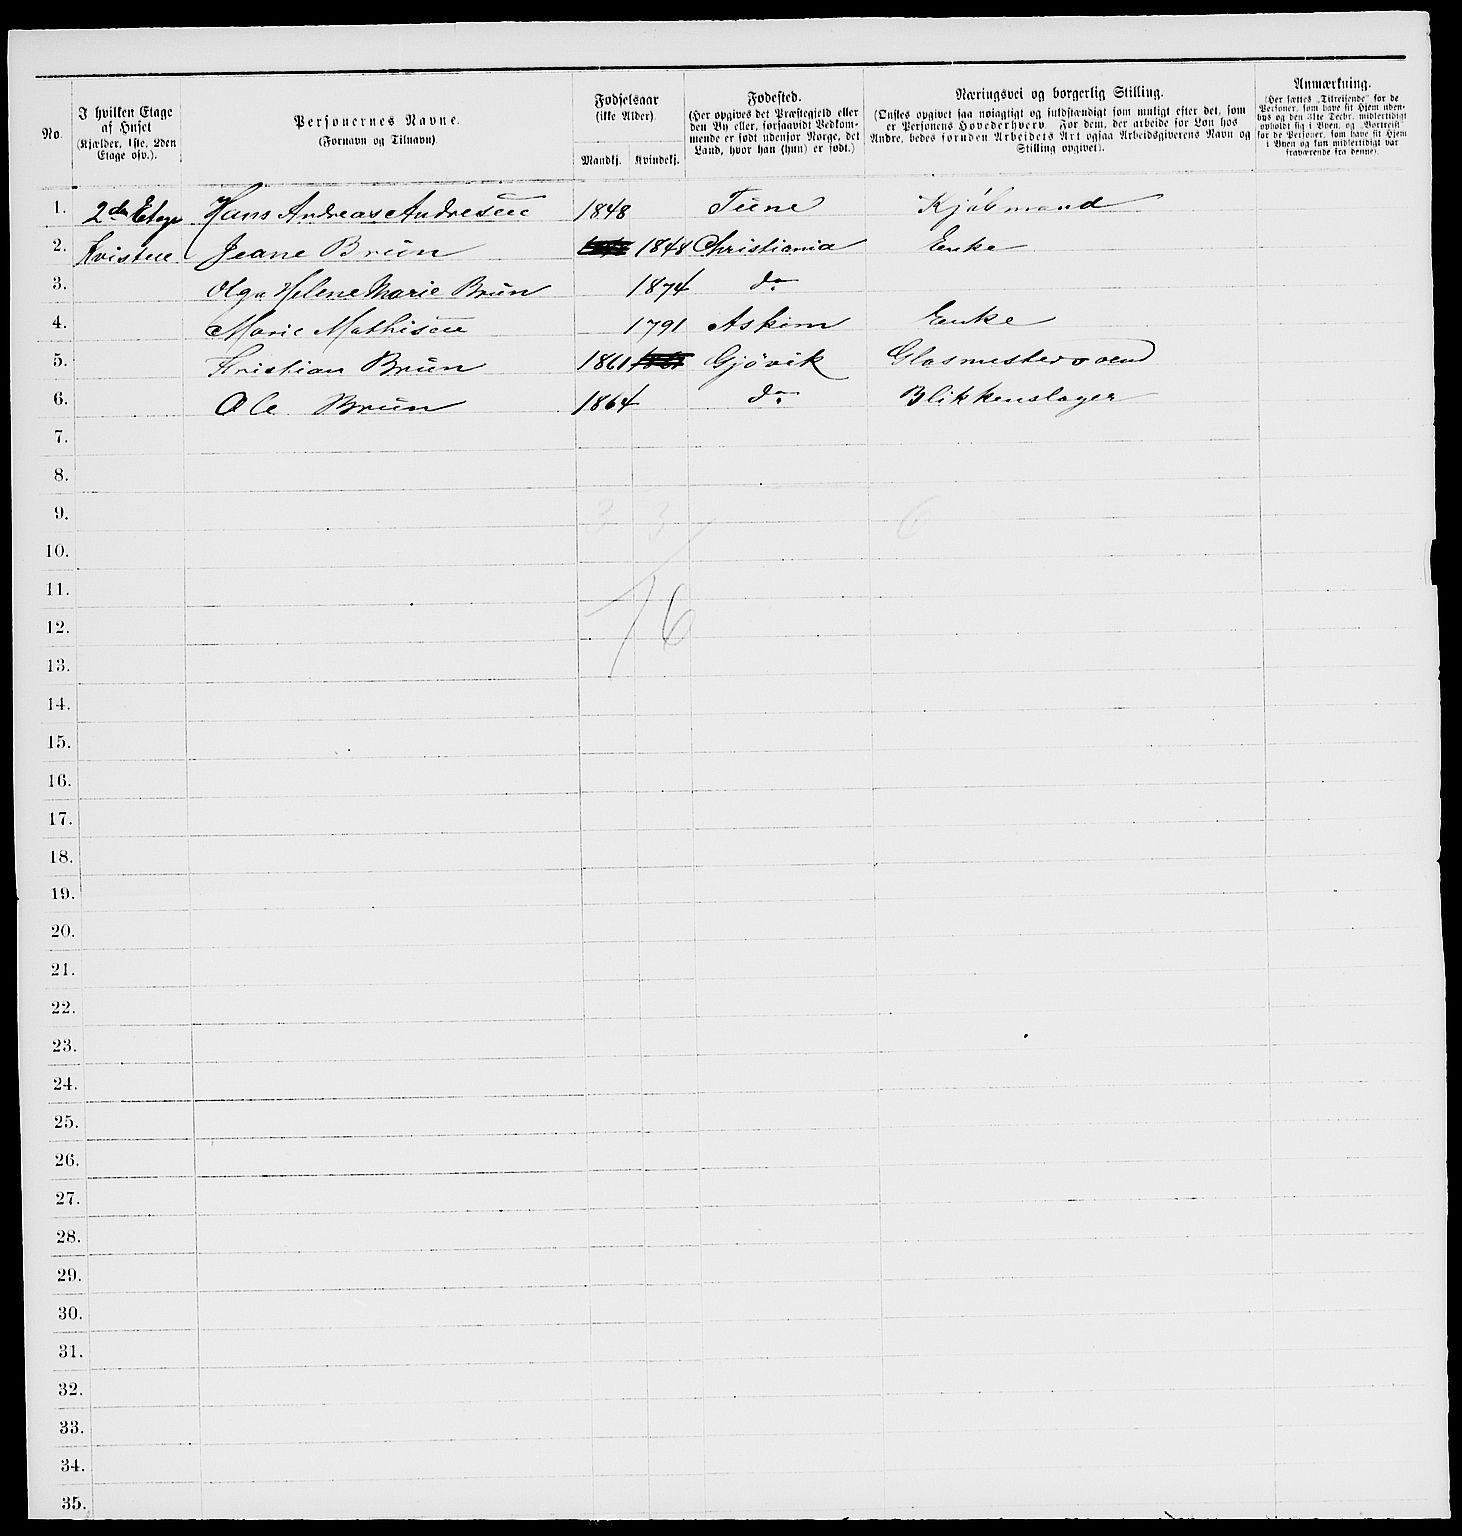 No.
I hvilken Etage af Huset (Kjælder, 1ste, 2den Etage osv.).
Personernes Navne.
(Fornavn og Tilnavn)
Fødselsaar
(ikke Alder).
Mandkj. Kvindekj.
Fødested.
(Her opgives det Præstegjeld eller
den By eller, forsaavidt Vedkom-
mende er født udenfor Norge, det
Land, hvor han (hun) er født.)
Næringsvei og borgerlig Stilling.
(Ønskes opgivet saa nøiagtigt og fuldstændigt som muligt efter det, som
er Personens Hovederhverv. For dem, der arbeide for Løn hos
Andre, bedes foruden Arbeidets Art ogsaa Arbeidsgiverens Navn og
Stilling opgivet).
Anmærkning.
(Her sættes „Tilreisende" for de
Personer, som have sit Hjem uden-
bys og den 31te Decbr. midlertidigt
opholdt sig i Byen, og „Bortreist"
for de Personer, som have sit Hjem
i Byen og kun midlertidigt var
fraværende fra denne).
1. 2den Etage Hans Andreas Andresen 1848 Tune Kjøbmand
2. Kvisten Jeane Brün 1848 Christiania Enke
3. Olga Helene Marie Brün 1874 do
4. Marie Mathisen 1791 Askim Enke
5. Kristian Brün 1861 Gjøvik Glasmestersvend
6. Ole Brün 1864 do Blikkenslager
7.
8.
9. 3 3 6
10.
11.
12. 6
13.
14.
15.
16.
17.
18.
19.
20.
21.
22.
23.
24.
25.
26.
27.
28.
29.
30.
31.
32.
33.
34.
35.